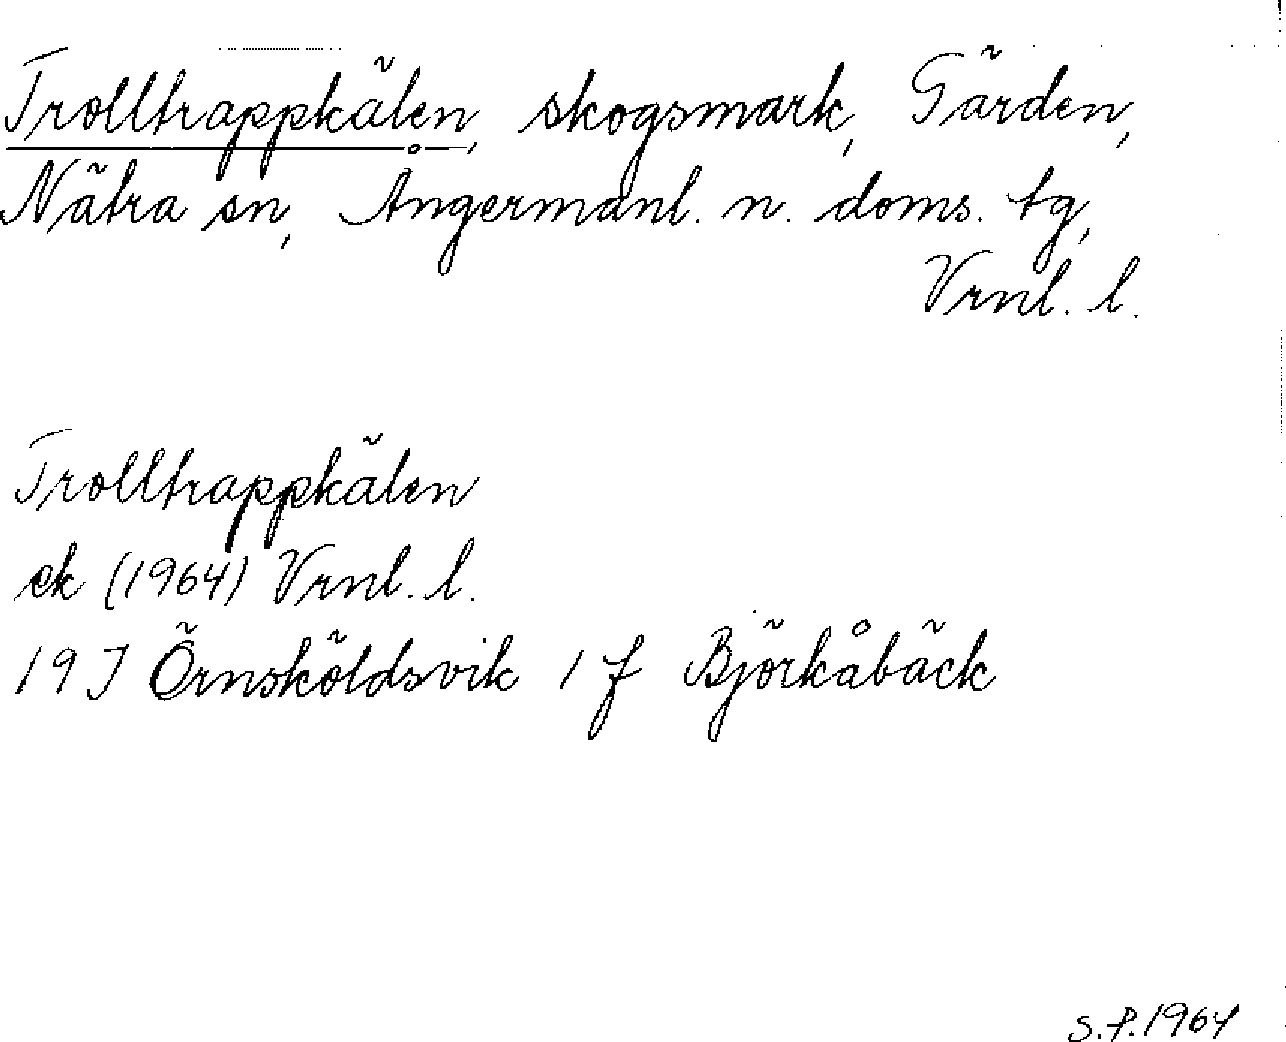 Trolltrappkälen, skogsmark, Gärden,
Nätra sn, Ångermanl. n. doms. tg,
Vrnl. l.
Trolltrappkälen
ek (1964) Vrnl. l.
19J Örnsköldsvik 1 f Björkåbäck
S.P. 1964